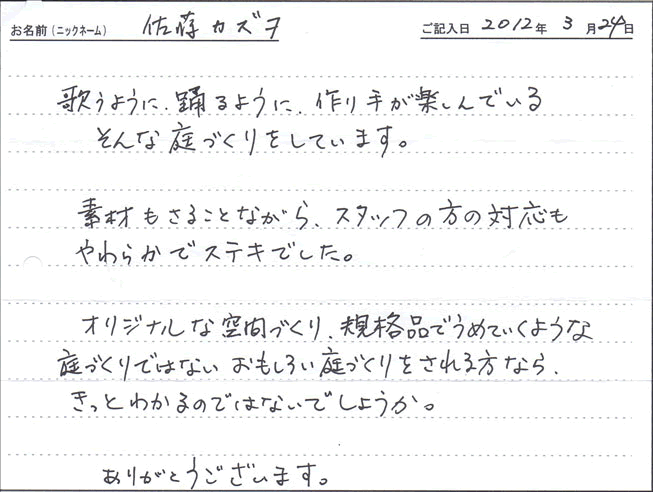 お名前(ニックネーム) 佐藤カズヲ ご記入日 2012年 3月24日
歌うように、踊るように、作り手が楽しんでいる
そんな庭づくりをしています。
素材もさることながら、スタッフの方の対応も
やわらかでステキでした。
オリジナルな空間づくり、規格品でうめていくような
庭づくりではない おもしろい庭づくりをされる方なら、
きっとわかるのではないでしょうか。
ありがとうございます。